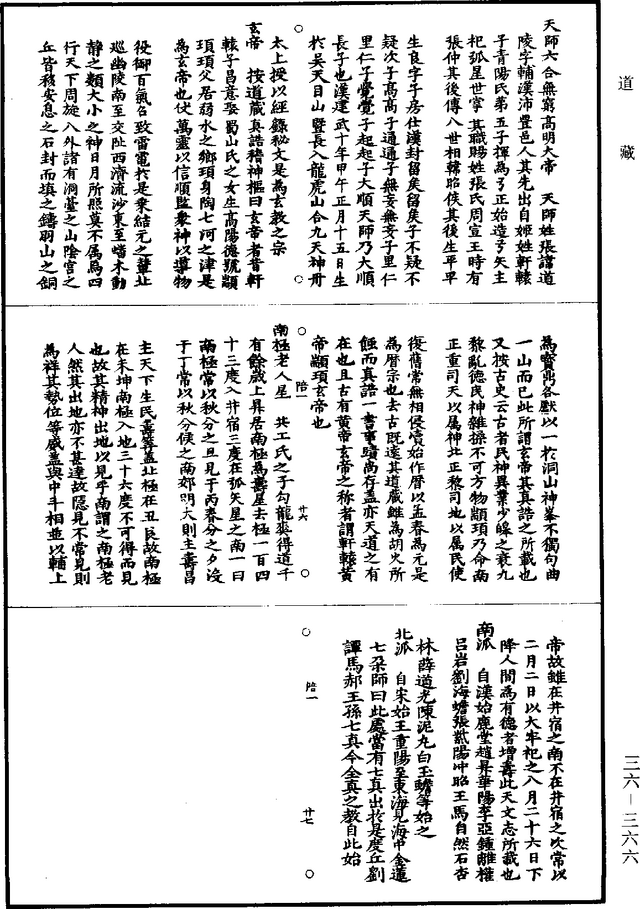 道藏
天師六合無窮高明大帝　天師姓張諱道
陵字輔漢沛豐邑人其先出自姬姓軒轅
子青陽氏第五子揮為弓正始造弓矢主
祀弧星世掌其職賜姓張氏周宣王時有
張仲其後傳八世相韓昭侯其後生平平
生良字子房仕漢封留矦留矦子不疑不
疑次子高高子通通子無妄無妄子里仁
里仁子㚖㚖子起起子大順天師乃大順
長子也漢建武十年甲午正月十五日生
於吳天目山暨長入龍虎山合九天神丹
太上授以經籙秘文是為玄教之宗
玄帝　按道藏真誥稽神樞曰玄帝者昔軒
轅子昌意娶蜀山氏之女生高陽德號顓
頊頊父居弱水之鄉頊身陶七河之津是
為玄帝也仗萬靈以信順監衆神以導物
役御百氣召致雷電於是乘結元之輦北
巡幽陵南至交阯西濟流沙東至蟠木動
靜之類大小之神日月所照莫不屬焉四
行天下周旋八外諸有洞臺之山陰宮之
丘皆移安息之石封而填之鑄羽山之銅
為寶鼎各獻以一於洞山神峯不獨句曲
一山而已此所謂玄帝其真誥之所載也
又按古史云古者民神異業少皥之衰九
黎亂德民神雜揉不可方物顓頊乃命南
正重司天以屬神北正黎司地以屬民使
復舊常無相侵凟始作曆以孟春為元是
為曆宗也去古既遠其道藏雖為胡火所
蝕而真誥一書事蹟尚存盖亦天道之有
在也且古有黄帝玄帝之称者謂軒轅黄
帝顓頊玄帝也
陪一
廿六
南極老人星　共工氏之子勾龍爽得道千
有餘歲上昇居南極為壽星去極一百四
十三度入井宿三度在弧矢星之南一曰
南極常以秋分之旦見于丙春分之夕没
于丁常以秋分候之南郊明大則主壽昌
主天下生民壽筭盖北極在丑艮故南極
在未坤南極入地三十六度不可得而見
也故其精神出地以見乎南謂之南極老
人然其出地亦不甚逺故隠見不常見則
為祥其勢位等威盖與中斗相並以輔上
帝故雖在井宿之南不在井宿之次常以
二月二日以大牢祀之八月二十六日下
降人間為有德者增壽此天文志所載也
南派　自漢始鹿堂趙昇華陽李亞鍾離權
吕岩劉海蟾張紫陽冲昭王馬自然石杏
林薛道光陳泥丸白玉蟾等始之
北派　自宋始王重陽至東海見海中金蓮
七朶師曰此處當有七真出於是度丘劉
譚馬郝王孫七真今全真之教自此始
陪一
廿七
三六－三六六